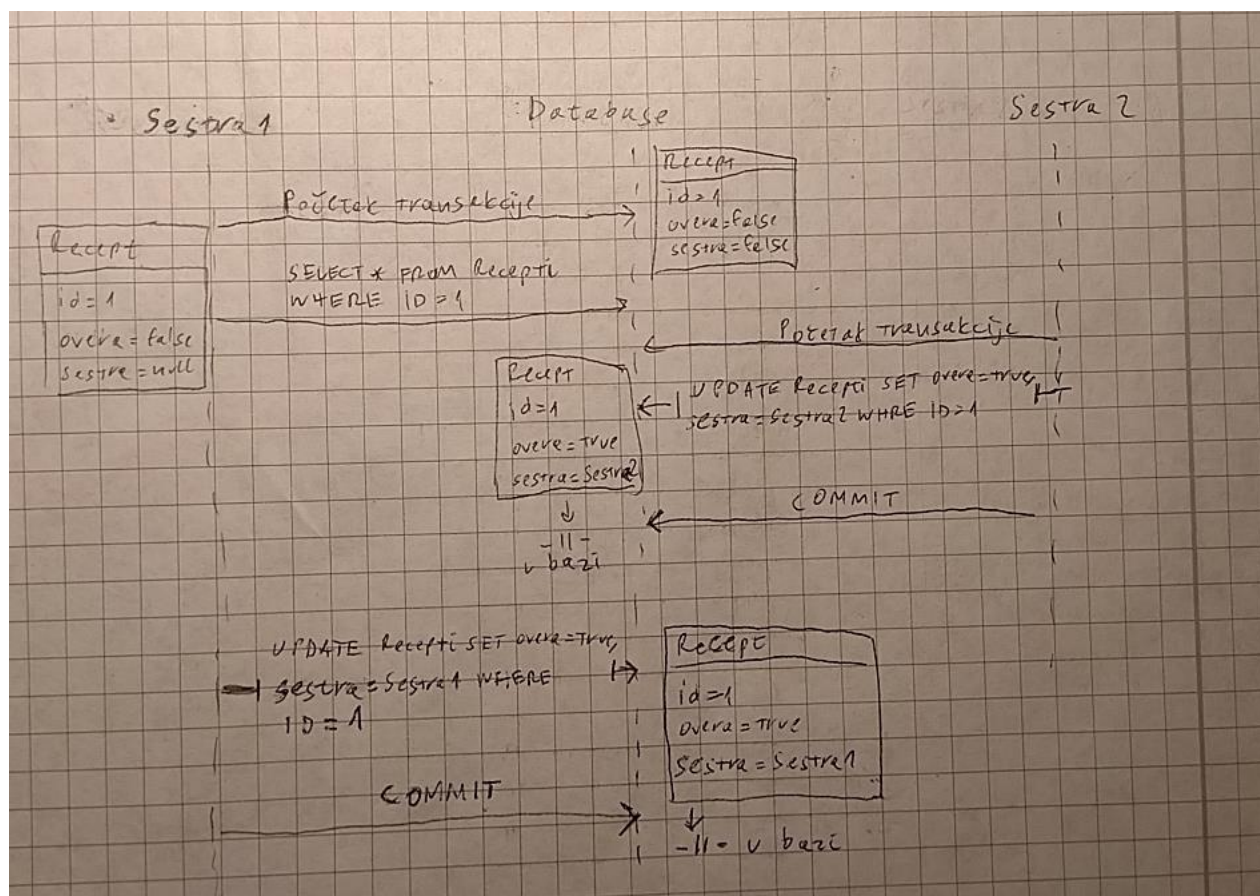 Sestra 1
:Database
Sestra 2
Recept
id=1
overa=false
sestra=false
Početak transakcije
Recept
id=1
overa=false
sestra=null
SELECT * FROM Recepti
WHERE ID=1
Početak transakcije
Recept
id=1
overa=true
sestra=Sestra2
UPDATE Recepti SET overa=true,
sestra=Sestra2 WHRE ID=1
COMMIT
-||-
u bazi
UPDATE Recepti SET overa=True,
sestra=Sestra1 WHERE
ID=1
Recept
id=1
overa=True
sestra=Sestra1
COMMIT
-||- u bazi